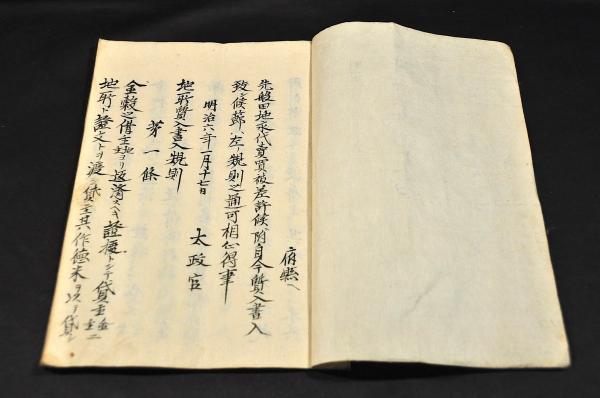 府縣へ
先般田地永代賣買被差許候ニ附自今質入書入
致シ候節ハ左ノ規則之通可相心得事
明治六年一月十七日
太政官
地所質入書入規則
第一條
金穀之借主地主ヨリ返済スヘキ證拠トシテ貸主金主ニ
地所ト證文トヲ渡シ貸主其作徳米ヲ以テ貸